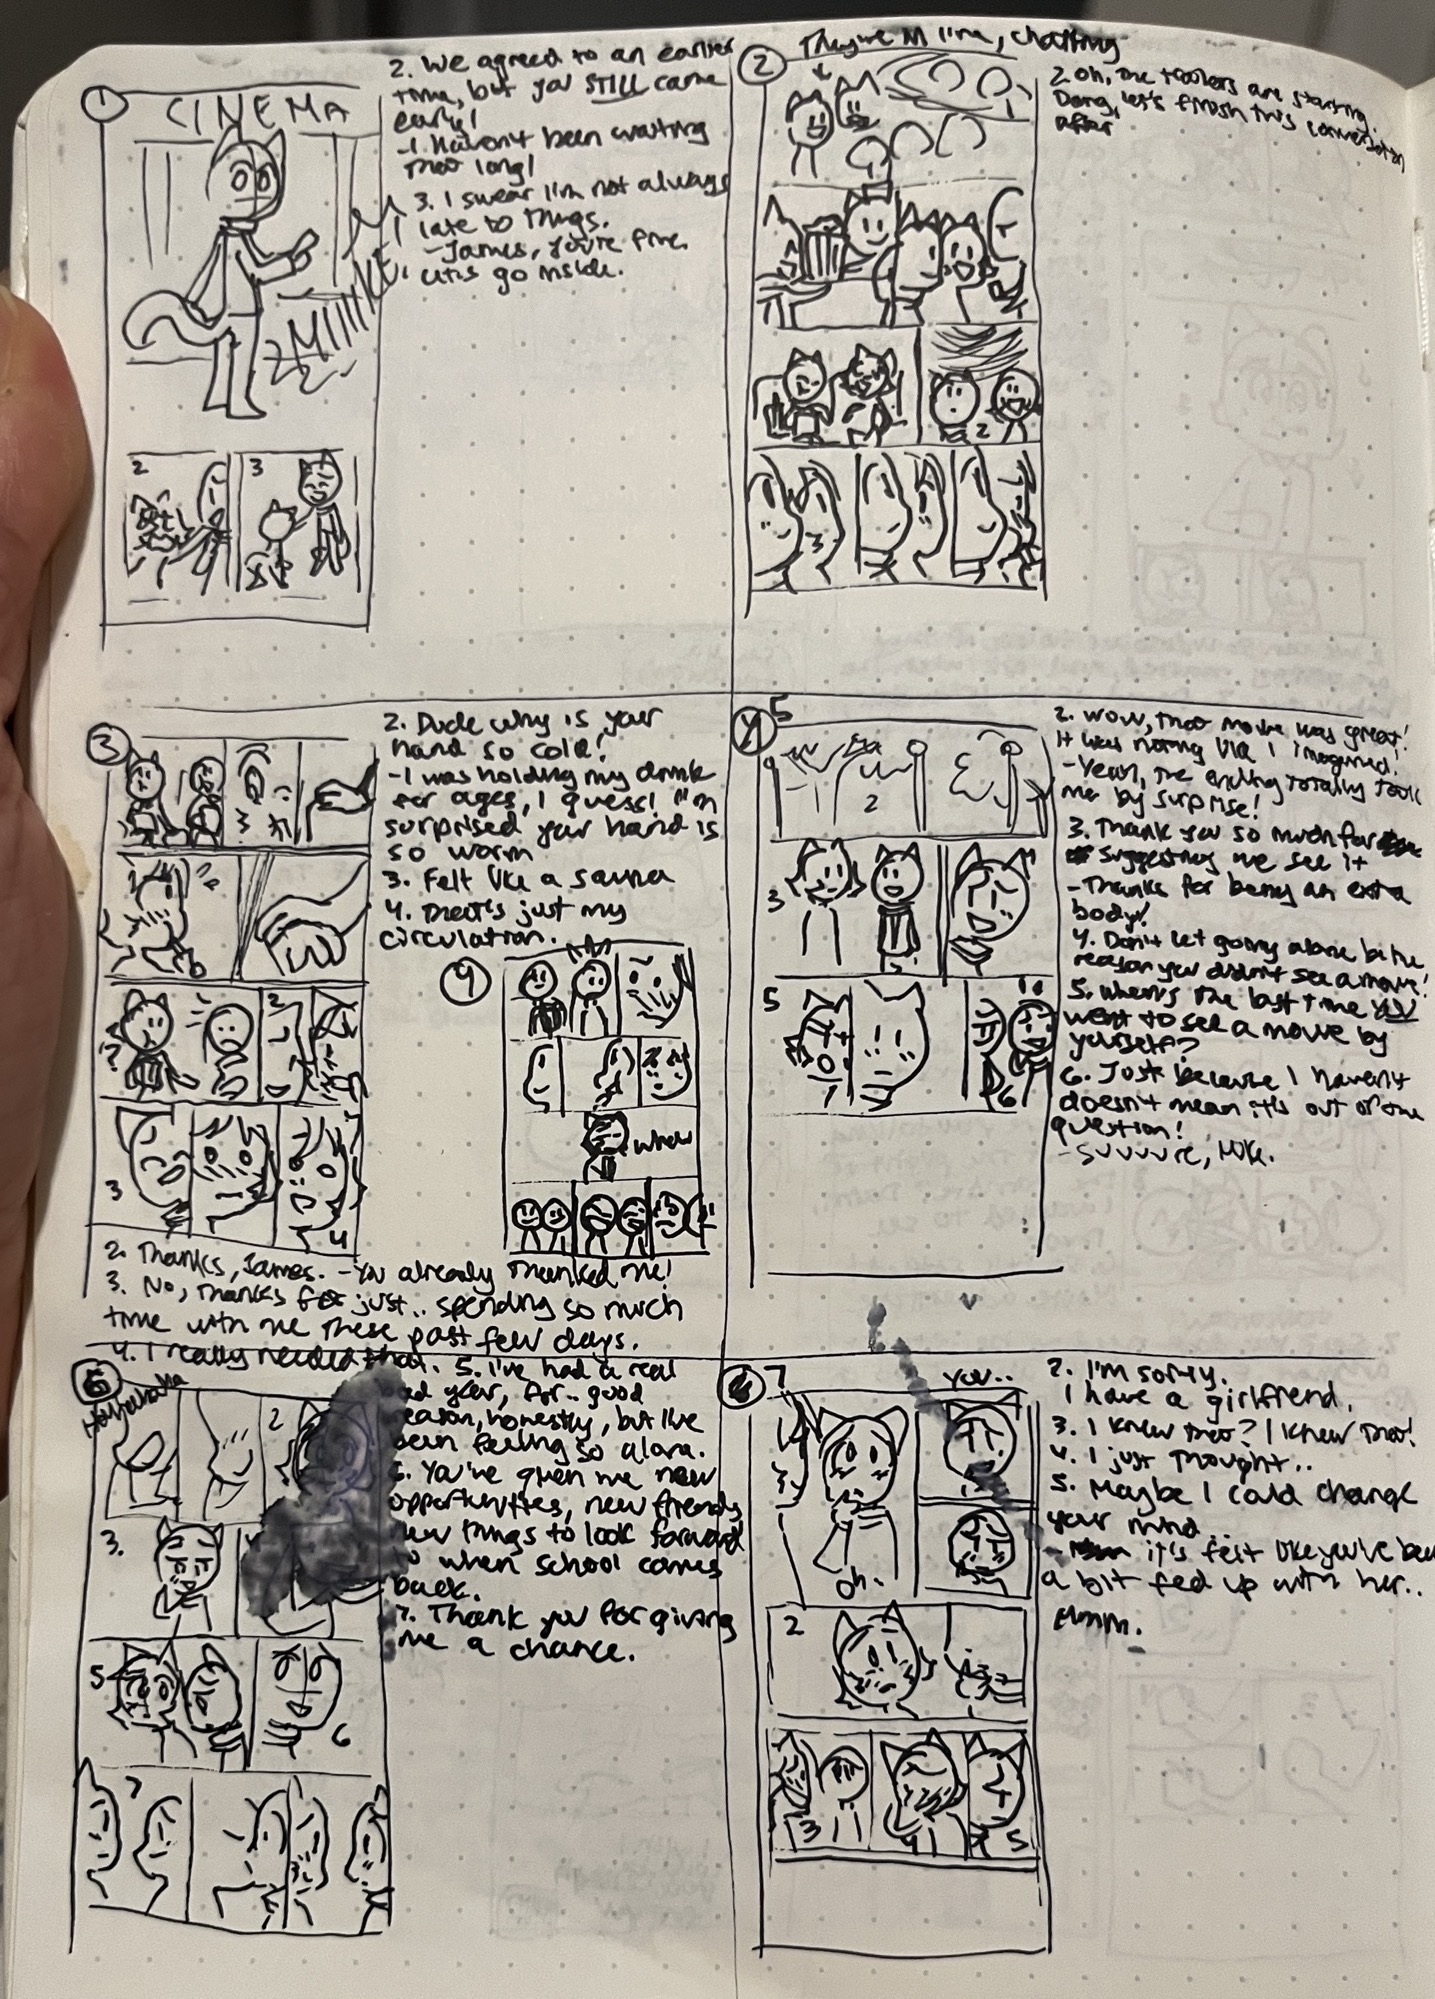 1
CINEMA
MIIIIKE!
2
3
2. We agreed to an earlier
time, but you STILL came
early!
-I haven't been waiting
that long!
3. I swear I'm not always
late to things.
-James, you're fine.
Let's go inside.
2
They're in line, chatting
2
2. Oh, the trailers are starting.
Dang, let's finish this conversation
after
3
3
2
3
4
2. Dude why is your
hand so cold!
-I was holding my drink
for ages, I guess! I'm
surprised your hand is
so warm
3. Felt like a sauna
4. That's just my
circulation.
4
whew
2. Thanks, James. -You already thanked me!
3. No, thanks for just.. spending so much
time with me these past few days.
4. I really needed that.
5
2
3
5
6
2. Wow, that movie was great!
It was nothing like I imagined.
-Yeah, the ending totally took
me by surprise!
3. Thank you so much for
suggesting we see it
-Thanks for being an extra
body!
4. Don't let going alone be the
reason you didn't see a movie!
5. When's the last time YOU
went to see a movie by
yourself?
6. Just because I haven't
doesn't mean it's out of the
question!
-Suuuure, Mike.
6
Hahahaha
2
3.
5
6
7
5. I've had a real
bad year, for.. good
reason, honestly, but I've
been feeling so alone.
6. You've given me new
opportunities, new friends,
new things to look forward
to when school comes
back.
7. Thank you for giving
me a chance.
7
you..
oh.
2
3
4
5
2. I'm sorry.
I have a girlfriend.
3. I knew that? I knew that!
4. I just thought..
5. Maybe I could change
your mind..
- it's felt like you've been
a bit fed up with her..